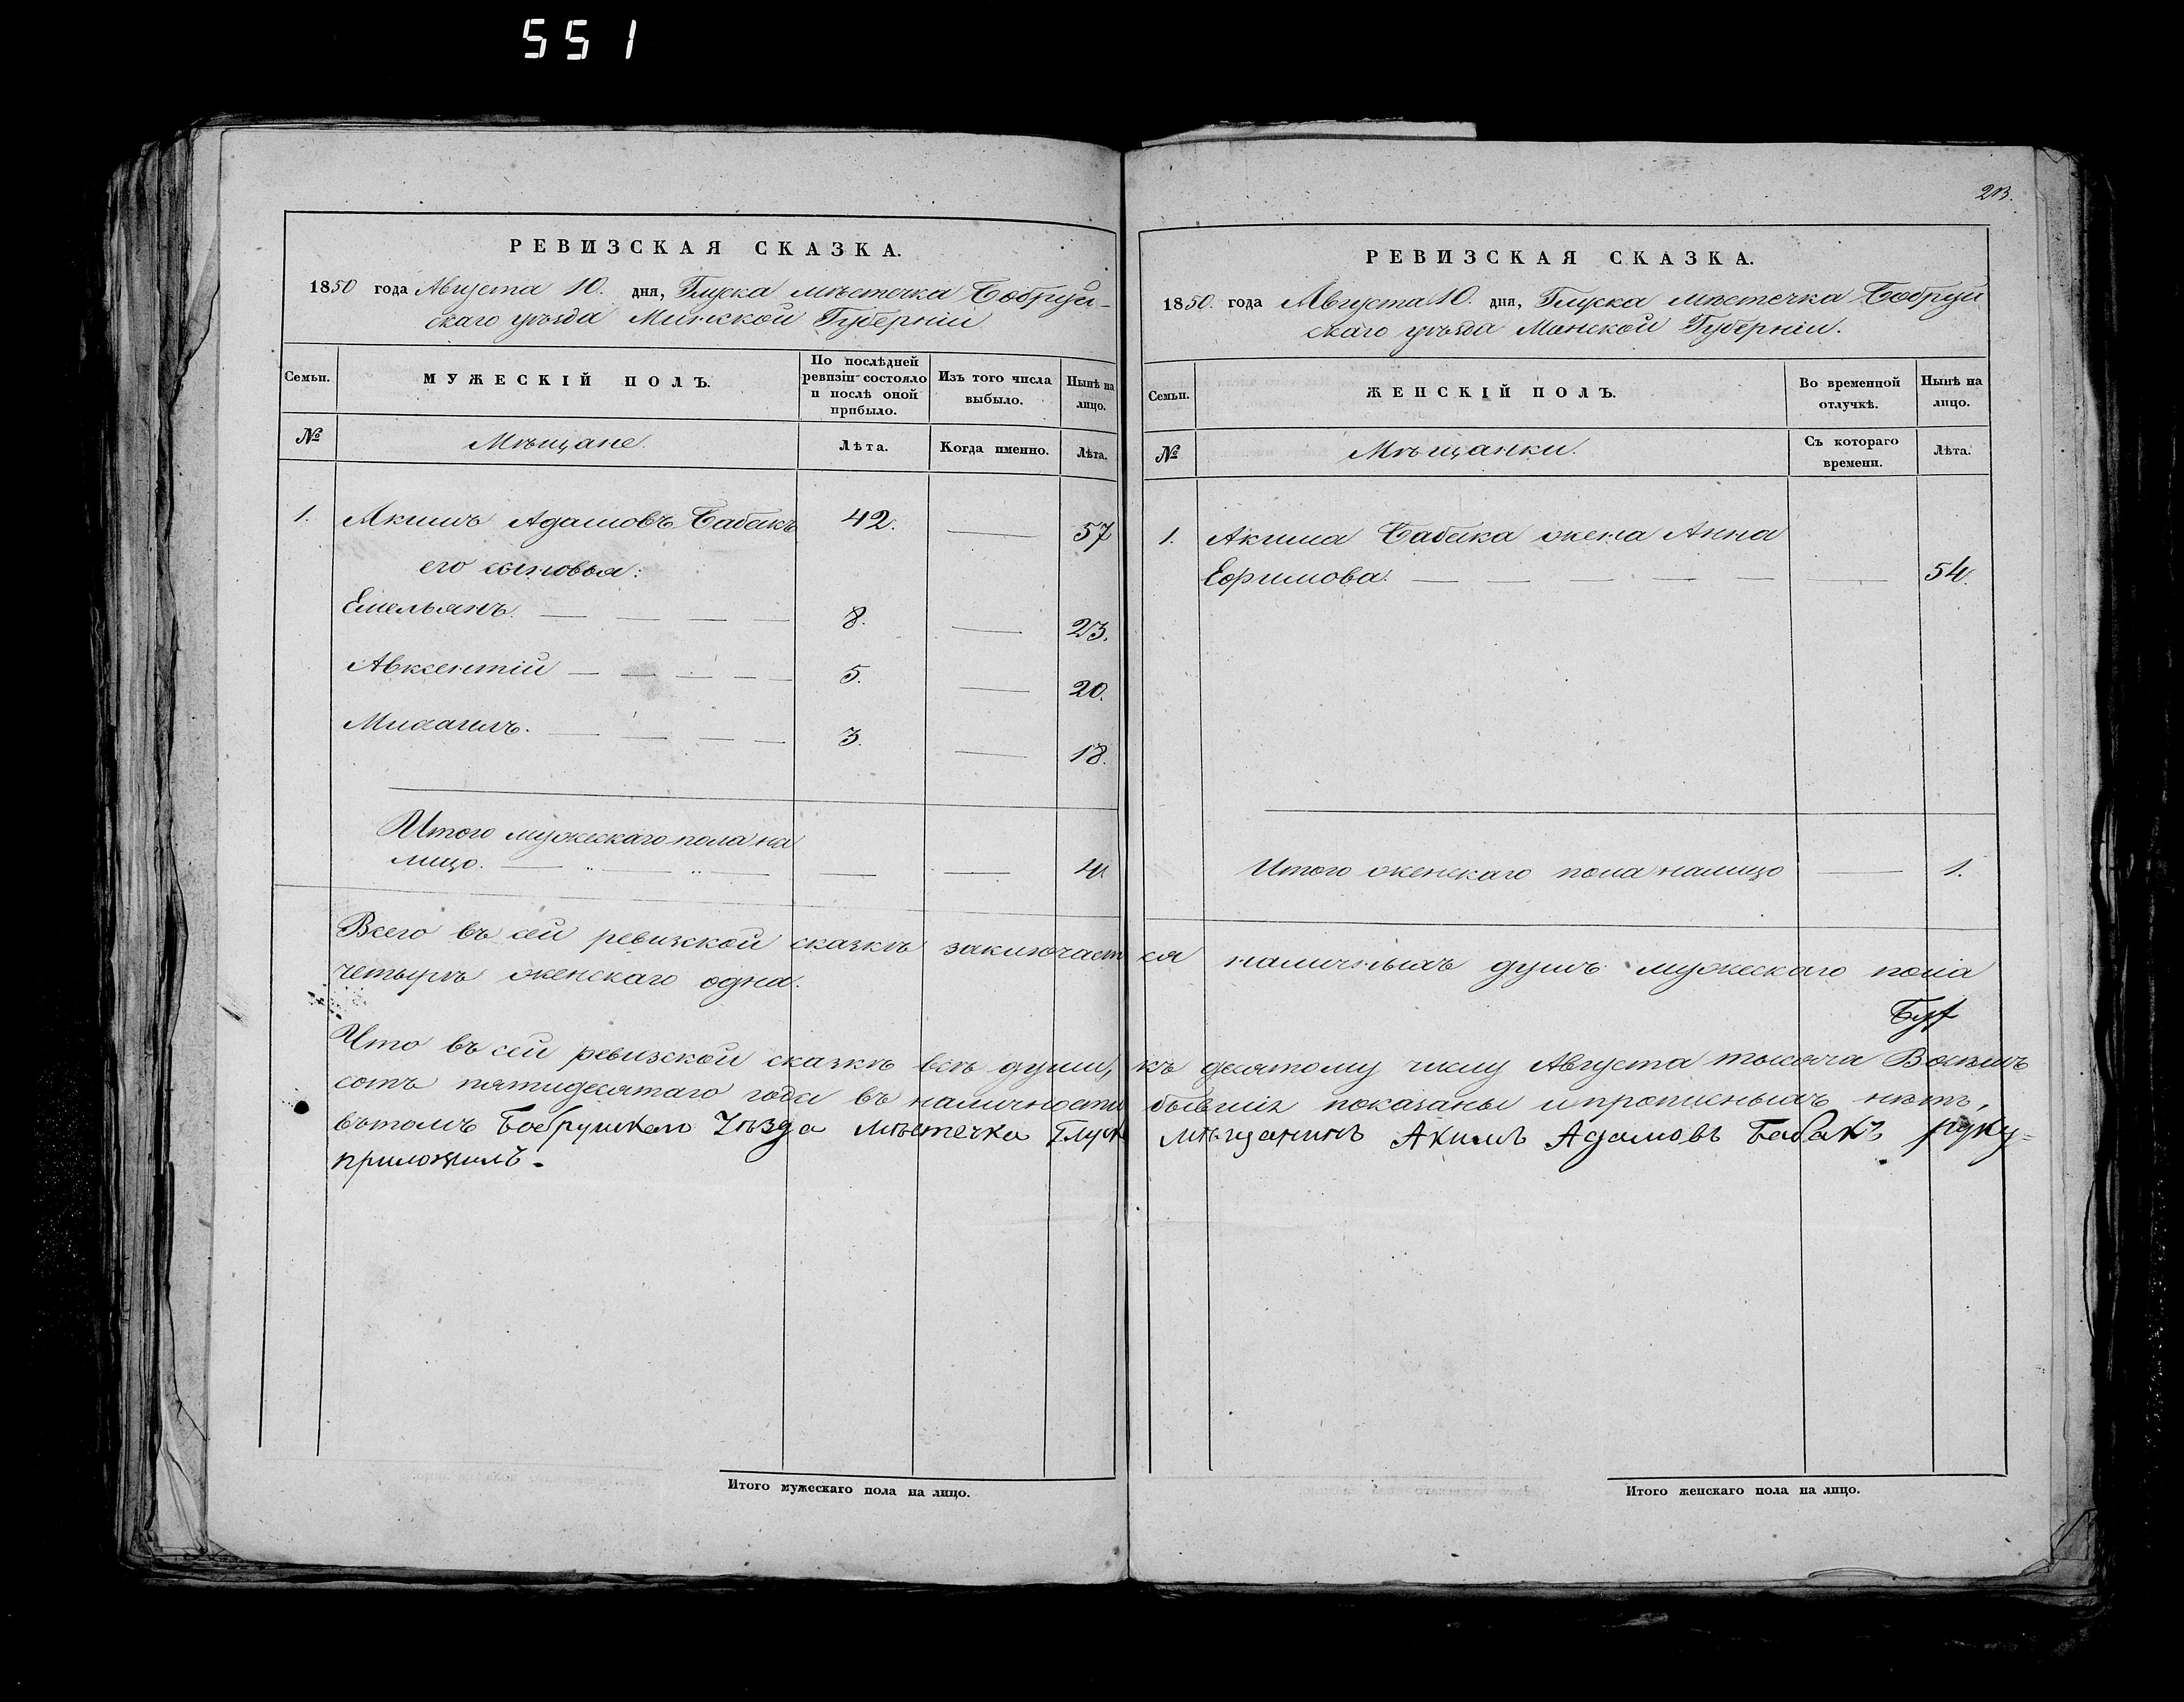 551
213.
РЕВИЗСКАЯ СКАЗКА.
1850 года Августа 10. дня, Глуска мѣстечка Бобруй-
скаго уѣзда Минской Губерніи
Семьи.
МУЖЕСКІЙ ПОЛЪ.
По послѣдней ревизіи состояло и послѣ оной прибыло.
Изъ того числа выбыло.
Нынѣ на лицо.
№
Мѣщане.
Лѣта.
Когда именно.
Лѣта.
1. Акимъ Адамовъ Бабакъ 42. — 57
его сыновья:
Емельянъ. — — — — 8. — 23.
Авксентій — — — — 5. — 20.
Михаилъ. — — — — 3. — 18.
Итого мужескаго пола на
лицо. — " — " — — — 4.
РЕВИЗСКАЯ СКАЗКА.
1850. года Августа 10. дня, Глуска мѣстечка Бобруй
скаго уѣзда Минской Губерніи.
Семьи.
ЖЕНСКІЙ ПОЛЪ.
Во временной отлучкѣ.
Нынѣ на лицо.
№
Мѣщанки.
Съ котораго времени.
Лѣта.
1. Акима Бабака жена Анна
Ефимова. — — — — — — 54.
Итого женскаго пола налицо — 1.
Всего въ сей ревизской сказкѣ заключается наличныхъ душъ мужескаго пола
четыре женскаго одна.
Что въ сей ревизской сказкѣ всѣ души, къ десятому числу Августа тысяча Восемь
сотъ пятидесятаго года въ наличности бывшія показаны и прописныхъ нѣтъ,
въ томъ Бобруйскаго Уѣзда мѣстечка Глуск мѣщанинъ Акимъ Адамовъ Бабакъ руку=
приложилъ.
Итого мужескаго пола на лицо.
Итого женскаго пола на лицо.